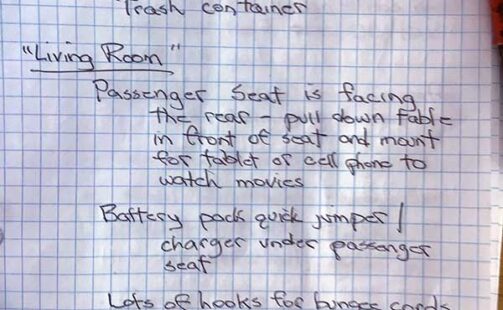 Trash container
"Living Room"
Passenger Seat is facing
the rear - pull down table
in front of seat and mount
for tablet or cell phone to
watch movies
Battery pack quick jumper /
charger under passenger
seat
Lots of hooks for bungee cords